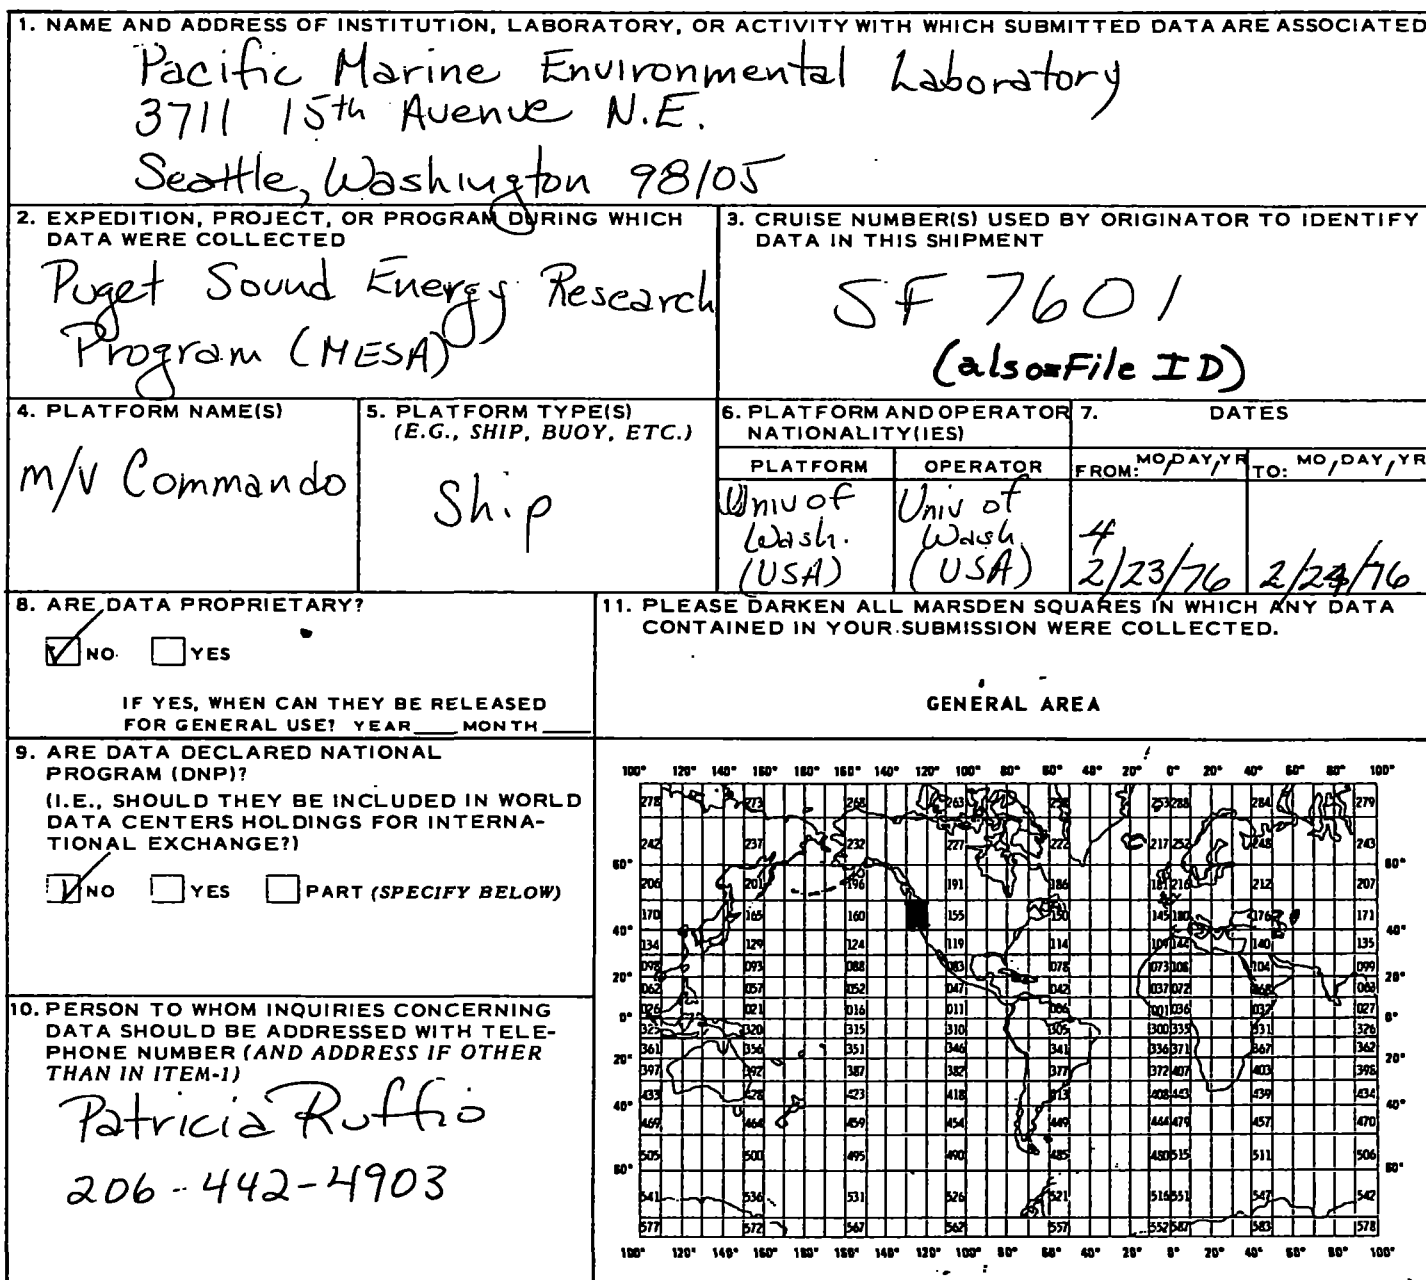 1. NAME AND ADDRESS OF INSTITUTION, LABORATORY, OR ACTIVITY WITH WHICH SUBMITTED DATA ARE ASSOCIATED
Pacific Marine Environmental Laboratory
3711 15th Avenue N.E.
Seattle, Washington 98105
2. EXPEDITION, PROJECT, OR PROGRAM DURING WHICH
DATA WERE COLLECTED
Puget Sound Energy Research
Program (MESA)
3. CRUISE NUMBER(S) USED BY ORIGINATOR TO IDENTIFY
DATA IN THIS SHIPMENT
SF 7601
(also=File ID)
4. PLATFORM NAME(S)
m/v Commando
5. PLATFORM TYPE(S)
(E.G., SHIP, BUOY, ETC.)
Ship
6. PLATFORM AND OPERATOR
NATIONALITY(IES)
PLATFORM
Univ of
Wash.
(USA)
OPERATOR
Univ of
Wash
(USA)
7. DATES
FROM: MO, DAY, YR
4
2/23/76
TO: MO, DAY, YR
2/24/76
8. ARE DATA PROPRIETARY?
NO YES
IF YES, WHEN CAN THEY BE RELEASED
FOR GENERAL USE? YEAR____ MONTH____
9. ARE DATA DECLARED NATIONAL
PROGRAM (DNP)?
(I.E., SHOULD THEY BE INCLUDED IN WORLD
DATA CENTERS HOLDINGS FOR INTERNA-
TIONAL EXCHANGE?)
NO YES PART (SPECIFY BELOW)
10. PERSON TO WHOM INQUIRIES CONCERNING
DATA SHOULD BE ADDRESSED WITH TELE-
PHONE NUMBER (AND ADDRESS IF OTHER
THAN IN ITEM-1)
Patricia Ruffio
206-442-4903
11. PLEASE DARKEN ALL MARSDEN SQUARES IN WHICH ANY DATA
CONTAINED IN YOUR SUBMISSION WERE COLLECTED.
GENERAL AREA
100° 120° 140° 160° 180° 160° 140° 120° 100° 80° 60° 40° 20° 0° 20° 40° 60° 80° 100°
278 273 268 263 258 253 288 284 279
242 237 232 227 222 217 252 248 243
60° 60°
206 201 196 191 186 181 216 212 207
170 165 160 155 150 145 180 176 171
40° 40°
134 129 124 119 114 109 144 140 135
098 093 088 083 078 073 108 104 099
20° 20°
062 057 052 047 042 037 072 068 063
026 021 016 011 006 001 036 032 027
0° 0°
325 320 315 310 305 300 335 331 326
361 356 351 346 341 336 371 367 362
20° 20°
397 392 387 382 377 372 407 403 398
433 428 423 418 413 408 443 439 434
40° 40°
469 464 459 454 449 444 479 457 470
505 500 495 490 485 480 515 511 506
60° 60°
541 536 531 526 521 516 551 547 542
577 572 567 562 557 552 587 583 578
100° 120° 140° 160° 180° 160° 140° 120° 100° 80° 60° 40° 20° 0° 20° 40° 60° 80° 100°